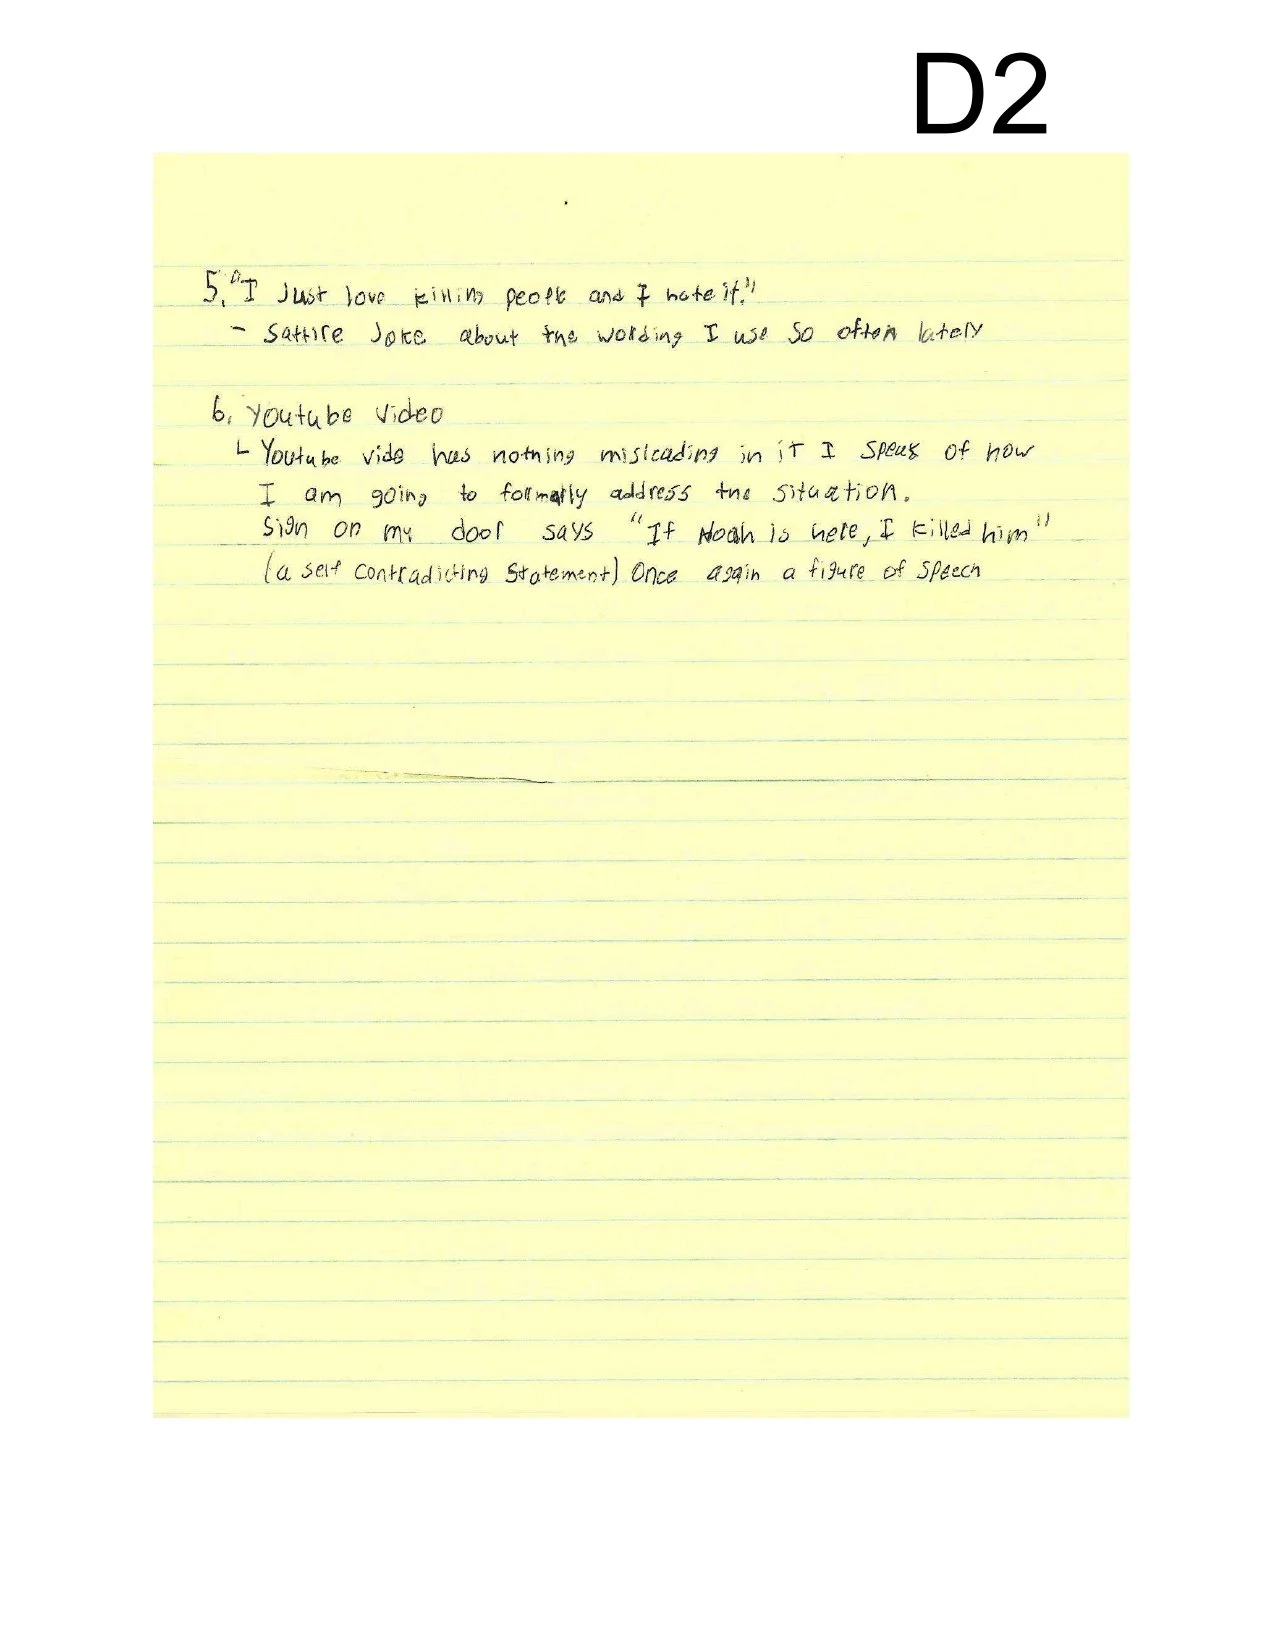 D2
5. "I Just love killing people and I hate it."
- Sattire Joke about the wording I use so often lately
6. Youtube Video
└ Youtube vide has nothing misleading in it I speak of how
I am going to formally address the situation.
Sign on my door says "If Noah is here, I killed him"
(a self contradicting statement) Once again a figure of speech